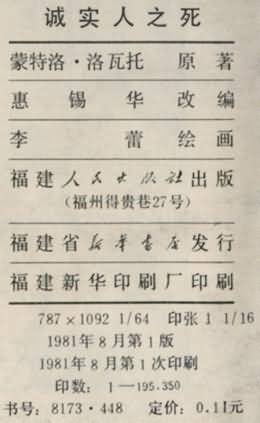 诚实人之死
蒙特洛·洛瓦托 原著
惠锡华改编
李蕾绘画
福建人民出版社出版
(福州得贵巷27号)
福建省新华书店发行
福建新华印刷厂印刷
787×1092 1/64 印张 1 1/16
1981年8月第1版
1981年8月第1次印刷
印数:1—195.350
书号:8173·448 定价:0.11元